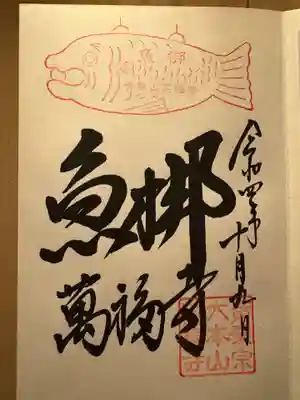 魚梆
萬福寺
令和四年
十月九日
黄檗宗
大本山